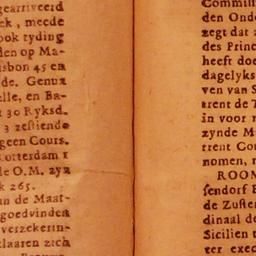 gearriveerd
ek, meede
ook tyding
den op Ma-
isbon 45 en
de. Genua
elle, en Ba-
t 30 Ryksd.
3 zestiende
geen Cours.
Rotterdam 1
de O.M. zyn
k 265.
an de Maat-
goedvinden
verzekerin-
klaaren zich
Commiss
den Onde
zegt dat
des Prince
heeft doe
dagelyks
ven van S
trent de T
in voor
zynde M
trent Cour
nomen,
ROOM
sendorf
de Zuster
dinaal de
Sicilien
ter exec